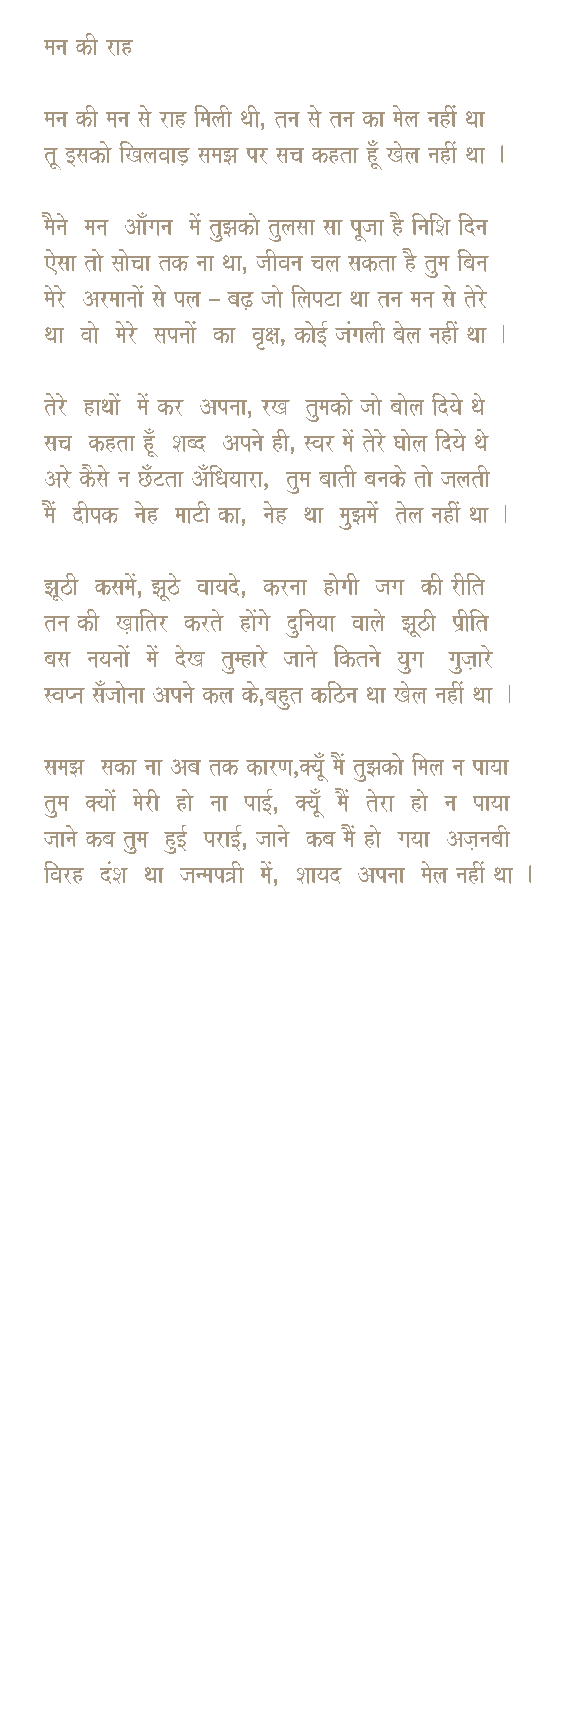 मन की राह
मन की मन से राह मिली थी, तन से तन का मेल नहीं था
तू इसको खिलवाड़ समझ पर सच कहता हूँ खेल नहीं था ।
मैने मन आँगन में तुझको तुलसा सा पूजा है निशि दिन
ऐसा तो सोचा तक ना था, जीवन चल सकता है तुम बिन
मेरे अरमानों से पल – बढ़ जो लिपटा था तन मन से तेरे
था वो मेरे सपनों का वृक्ष, कोई जंगली बेल नहीं था ।
तेरे हाथों में कर अपना, रख तुमको जो बोल दिये थे
सच कहता हूँ शब्द अपने ही, स्वर में तेरे घोल दिये थे
अरे कैसे न छँटता अँधियारा, तुम बाती बनके तो जलती
मैं दीपक नेह माटी का, नेह था मुझमें तेल नहीं था ।
झूठी कसमें, झूठे वायदे, करना होगी जग की रीति
तन की ख़ातिर करते होंगे दुनिया वाले झूठी प्रीति
बस नयनों में देख तुम्हारे जाने कितने युग गुज़ारे
स्वप्न सँजोना अपने कल के,बहुत कठिन था खेल नहीं था ।
समझ सका ना अब तक कारण,क्यूँ मैं तुझको मिल न पाया
तुम क्यों मेरी हो ना पाई, क्यूँ मैं तेरा हो न पाया
जाने कब तुम हुई पराई, जाने कब मैं हो गया अज़नबी
विरह दंश था जन्मपत्री में, शायद अपना मेल नहीं था ।